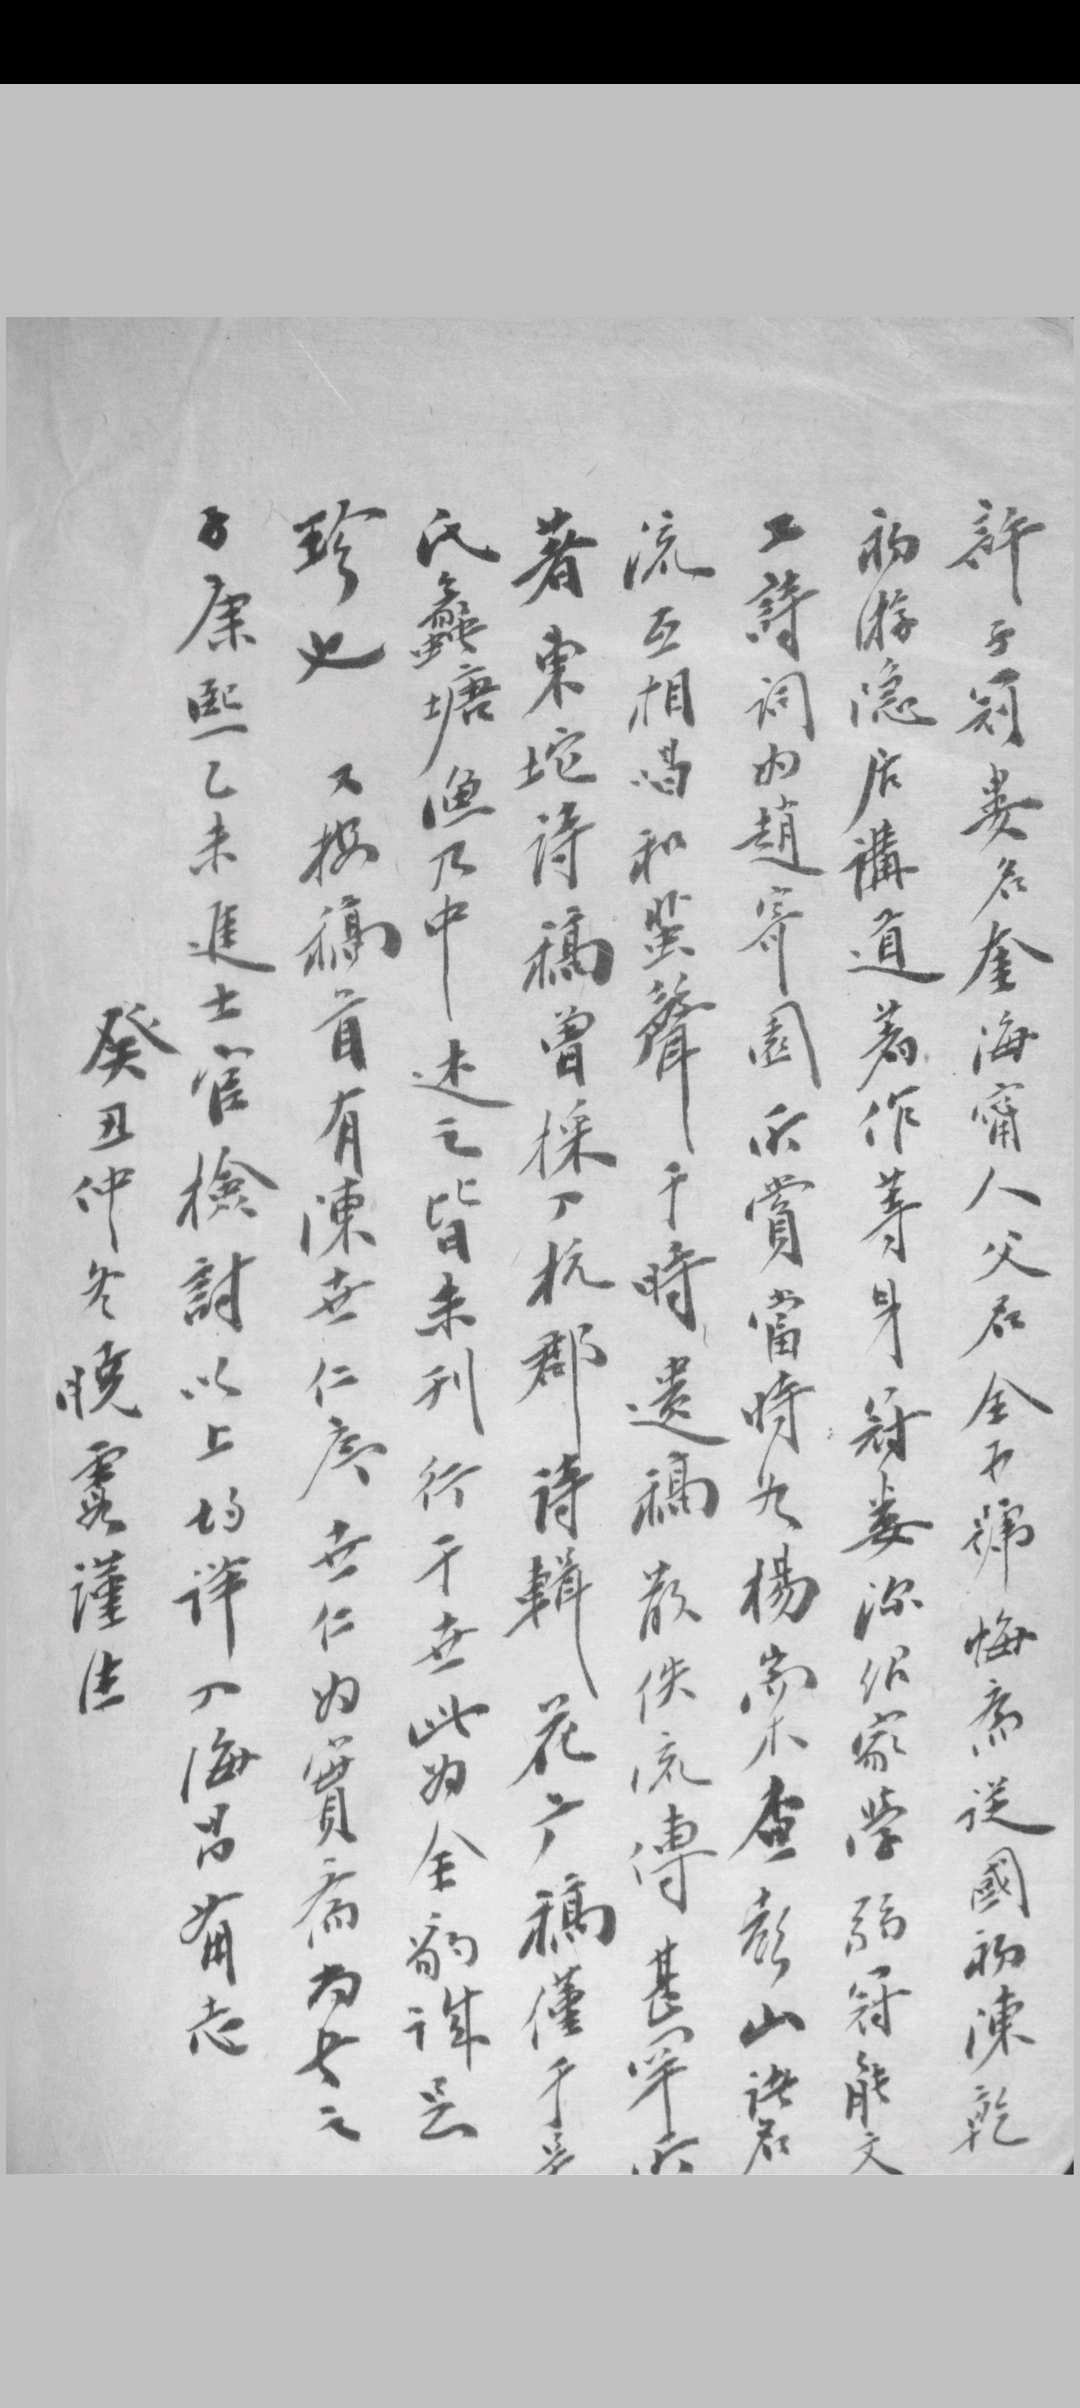 許子冠婁名奎海甯人父名全可號悔齋從國初陳乾
初游隱居講道著作等身冠婁深紹家學弱冠能文
工詩詞為趙寄園所賞當時如楊崇木查彭山諸君
流互相唱和蜚聲于時遺稿散佚流傳甚罕所
著東垞詩稿曾採入杭郡詩輯花广稿僅于吳
氏蠡塘漁乃中述之皆未刊行于世此為全豹誠足
珍也 又按稿首有陳世仁序世仁為實齋尚書之
子康熙乙未進士官檢討以上均詳入海昌備志
癸丑仲冬曉霞謹注